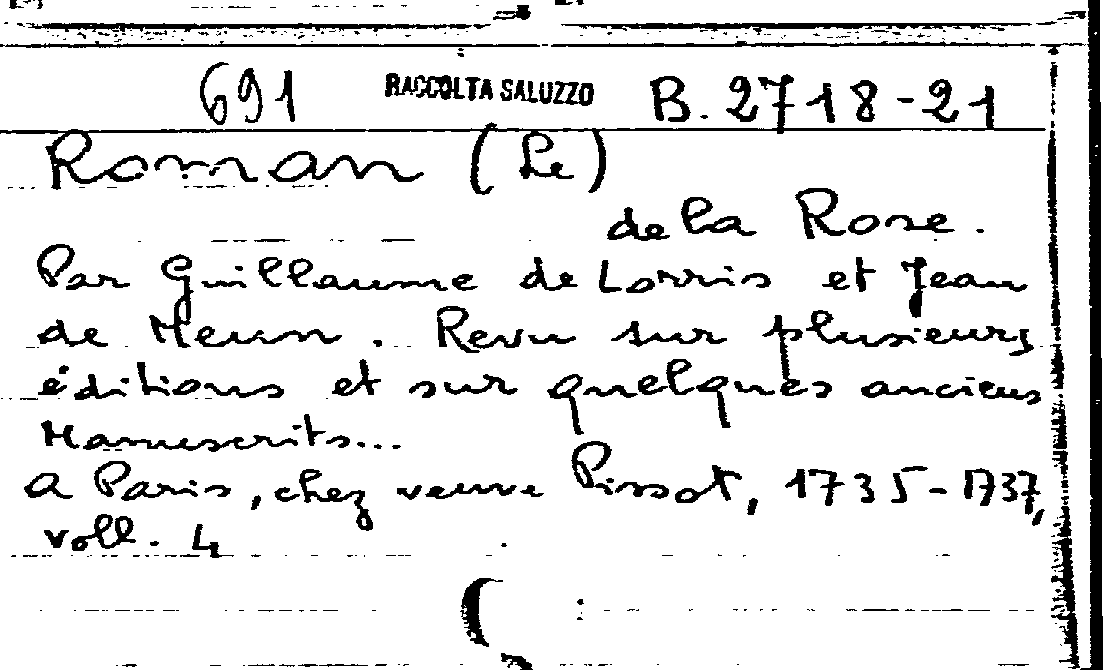 691 RACCOLTA SALUZZO B. 2718-21
Roman (Le)
de la Rose.
Par Guillaume de Lorris et Jean
de Meun. Revu sur plusieurs
éditions et sur quelques anciens
Manuscrits...
A Paris, chez veuve Pissot, 1735-1737,
voll. 4